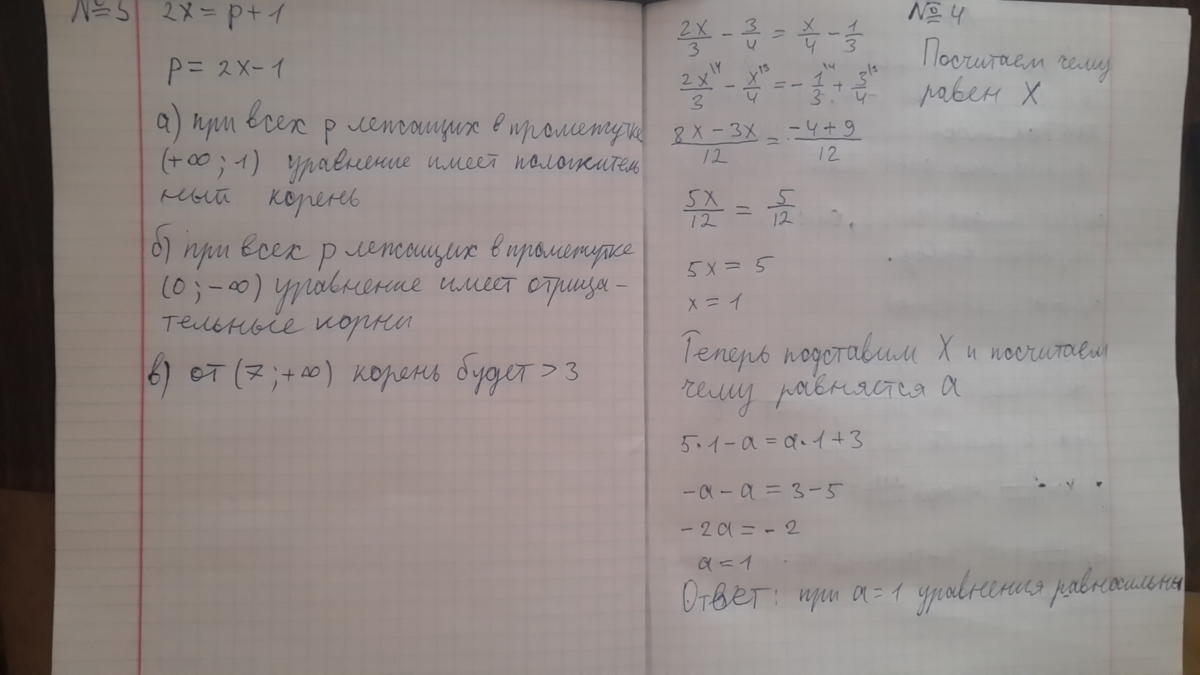 №3 2x = p + 1
p = 2x - 1
а) при всех p лежащих в промежутке
(+∞; 1) уравнение имеет положитель
ный корень
б) при всех p лежащих в промежутке
(0; -∞) уравнение имеет отрица-
тельные корни
в) от (7; +∞) корень будет > 3
№4
2x/3 - 3/4 = x/4 - 1/3
Посчитаем чему
равен X
2x/3 \4 - x/4 \3 = - 1/3 \4 + 3/4 \3
8x - 3x/12 = -4 + 9/12
5x/12 = 5/12
5x = 5
x = 1
Теперь подставим X и посчитаем
чему равняется a
5·1 - a = a·1 + 3
-a - a = 3 - 5
-2a = -2
a = 1
Ответ: при a = 1 уравнения равносильны